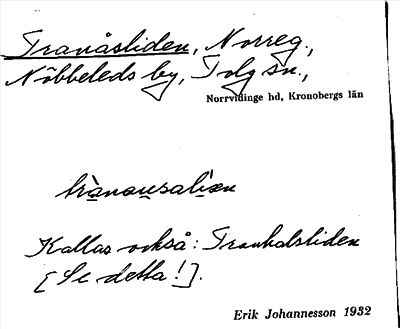 Tranåsliden, Norreg.,
Nöbbeleds by, Tolg sn.,
Norrvidinge hd, Kronobergs län
trànausalìən
Kallas också: Tranhalsliden
[Se detta!].
Erik Johannesson 1932